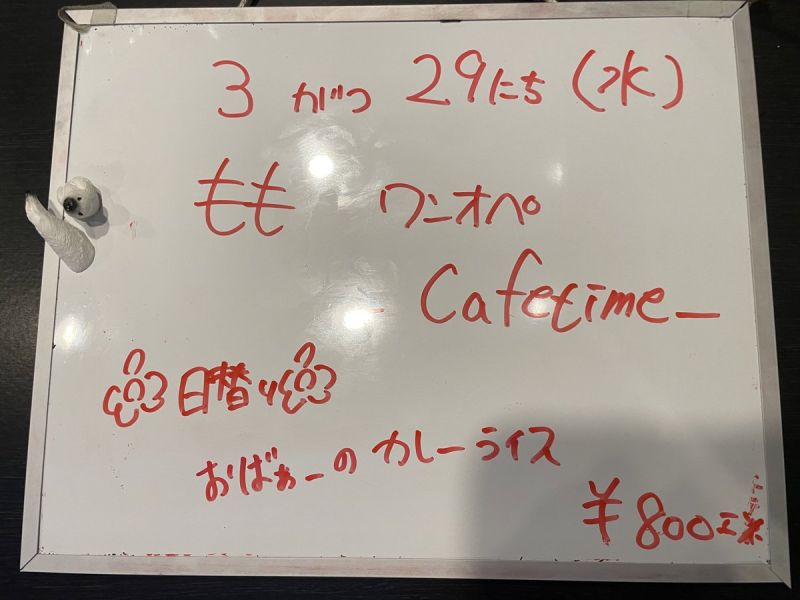 3がつ 29にち (水)
もも ワンオペ
- Cafetime -
日替り
おばぁーの カレーライス
¥800